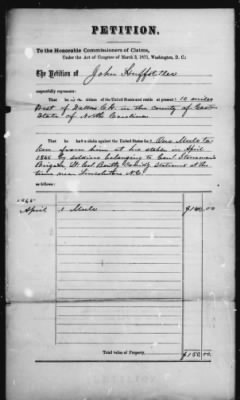 PETITION.
To the Honorable Commissioners of Claims,
Under the Act of Congress of March 3, 1871, Washington, D. C.:
The Petition of John Huffstetler
respectfully represents:
That he is citizen of the United States and reside at present: 10 miles
West of Dallas C.H. in the county of Gaston
State of North Carolina
That he has a claim against the United States for One Mule ta-
ken from him at his stable in April
1865 by soldiers belonging to Genl Stoneman's
Brigade, Lt Col Cavalry Stationed at the
time near Lincolnton N.C.
1865
April 1 Mule $150.00
Total value of Property, $150.00